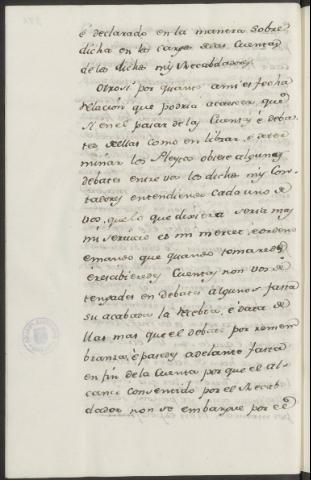 é declarado en la manera sobre
dicha en la carga de las Cuentas
de los dichos mis Recabdadores
Otrosi por quanto á mi es fecha
relacion que podria acaescer, que
si en el pasar de las Cuentas é deba-
tes dellas como en librar, é deter
minar los Pleytos obiese algunos
debates entre vos los dichos mis Con-
tadores entendiendo cada uno de
vos, que lo que dixiera seria mas
mi servicio es mi merced, é ordeno
é mando que quando tomaredes
é rescibieredes Cuentas non vos de
tengades en debates algunos fasta
su acabada la recebta, é data de
llas mas que el debate por remem
branza, é pasedes adelante fasta
en fin de la Cuenta por que el al-
cance convencido por el Recab-
dador non se embargue por el